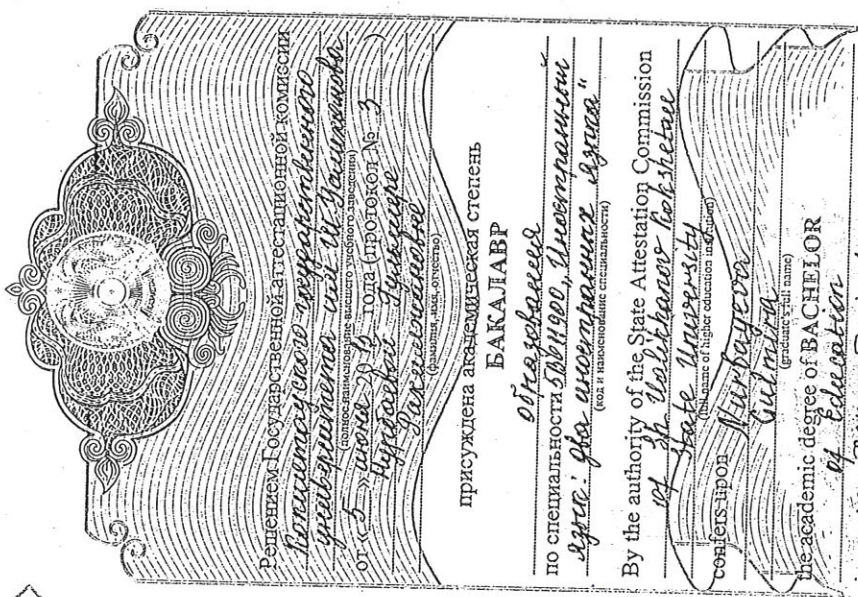 Решением Государственной аттестационной комиссии
Кокшетауского государственного
университета им Ш Уалиханова
(полное наименование высшего учебного заведения)
от « 5 » июня 20 года (протокол № 3 )
Нурбаевой Гульмире
(фамилия, имя, отчество)
присуждена академическая степень
БАКАЛАВР
образования
по специальности 5В011900 „Иностранный
язык: два иностранных языка"
(код и наименование специальности)
By the authority of the State Attestation Commission
of Sh Ualikhanov Kokshetau
State University
(full name of higher education institution)
confers upon Nurbayeva
Gulmira
(graduate's full name)
the academic degree of BACHELOR
of Education